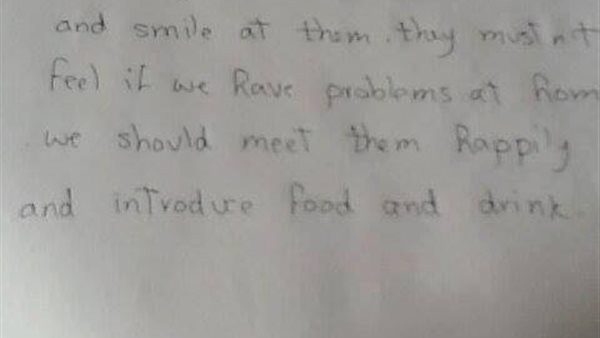 and smile at them. they mustn't
feel if we have problems at hom
we should meet them happily
and introduce food and drink.